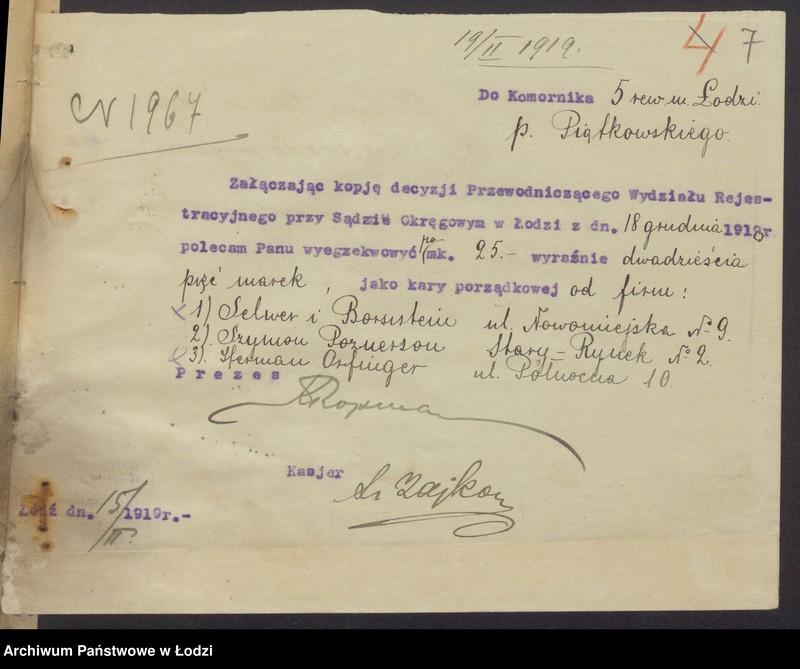 19/II 1919.
4 7
N 1967
Do Komornika 5 rew. m. Łodzi.
p. Piątkowskiego.
Załączając kopję decyzji Przewodniczącego Wydziału Rejes-
tracyjnego przy Sądzie Okręgowym w Łodzi z dn. 18 grudnia 1918r.
polecam Panu wyegzekwowyć po mk. 25.- wyraźnie dwadzieścia
pięć marek, jako kary porządkowej od firm:
1) Selwer i Borsztein ul. Nowomiejska № 9.
2). Szymon Poznerson Stary-Rynek № 2.
3). Herman Orfinger ul. Północna 10
Prezes
Kasjer
Łódź dn. 15/II 1919r.-
Archiwum Państwowe w Łodzi